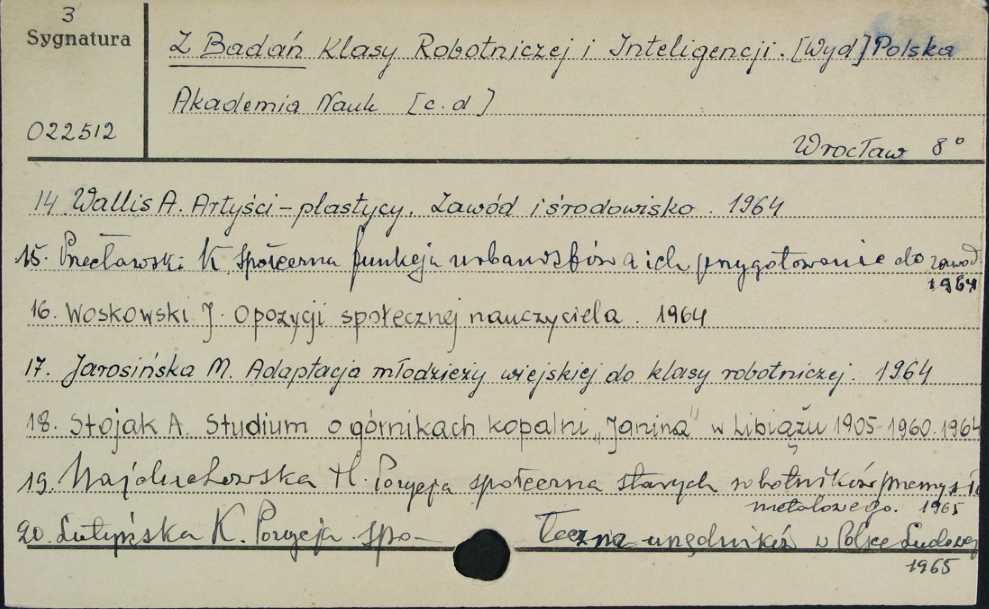 3
Sygnatura
Z Badań Klasy Robotniczej i Inteligencji. [Wyd] Polska
Akademia Nauk [c.d]
022512
Wrocław 8°
14. Wallis A. Artyści - plastycy. Zawód i środowisko. 1964
15. Przecławski K. Społeczna funkcja urbanistów a ich przygotowanie do zawod.
1964
16. Woskowski J. O pozycji społecznej nauczyciela. 1964
17. Jarosińska M. Adaptacja młodzieży wiejskiej do klasy robotniczej. 1964
18. Stojak A. Studium o górnikach kopalni „Janina" w Libiążu 1905-1960. 1964
19. Najduchowska H. Pozycja społeczna starych robotników przemysłu
metalowego. 1965
20. Lutyńska K. Pozycja spo- łeczna urzędników w Polsce Ludowej
1965